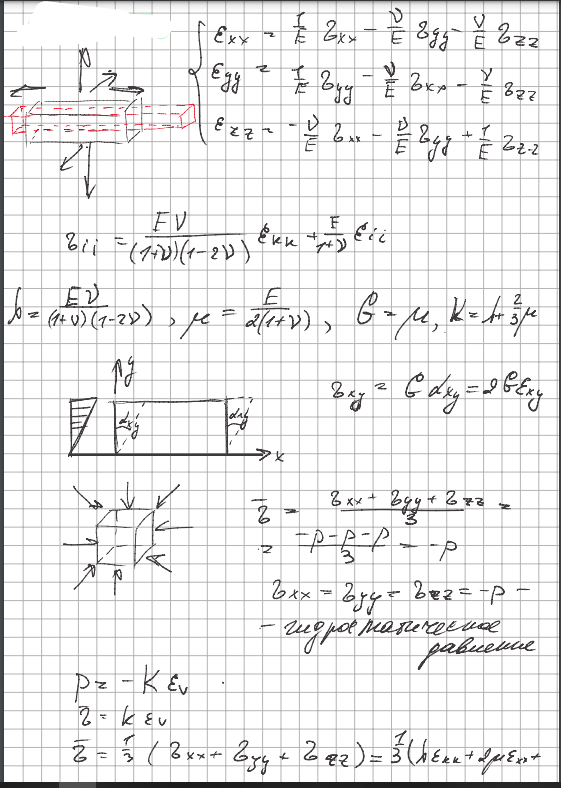 εxx = 1/E σxx - ν/E σyy - ν/E σzz
εyy = 1/E σyy - ν/E σxx - ν/E σzz
εzz = -ν/E σxx - ν/E σyy + 1/E σzz
σii = Eν/((1+ν)(1-2ν)) εkk + E/(1+ν) εii
λ = Eν/((1+ν)(1-2ν)), μ = E/(2(1+ν)), G = μ, K = λ + 2/3 μ
y
σxy = G αxy = 2G εxy
αxy αxy
x
σ̄ = (σxx + σyy + σzz)/3 =
= (-p-p-p)/3 = -p
σxx = σyy = σzz = -p -
- гидростатическое
давление
p = -K εv
σ̄ = k εv
σ̄ = 1/3 (σxx + σyy + σzz) = 1/3 (λεkk + 2μεxx +